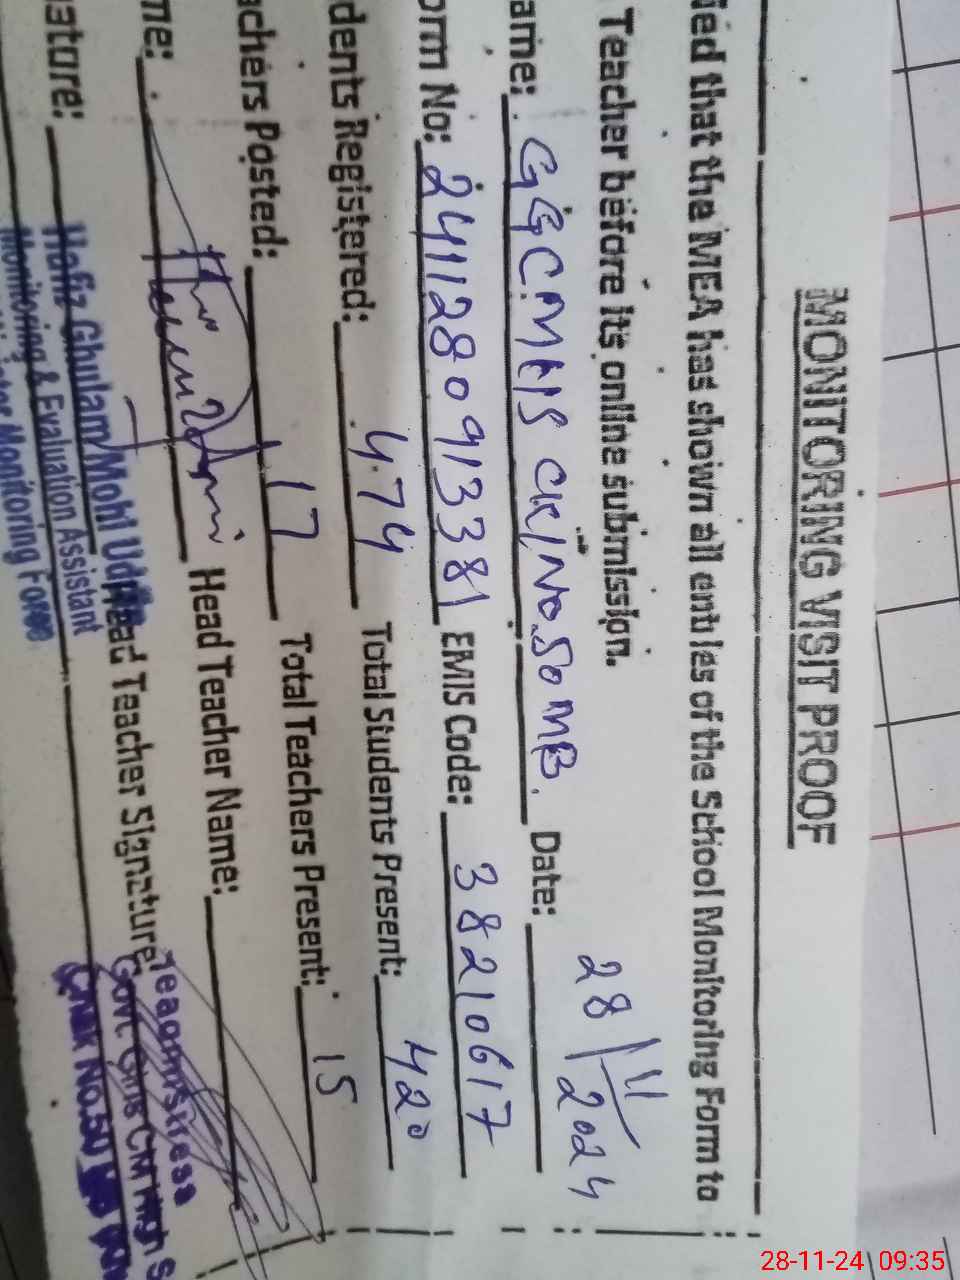 MONITORING VISIT PROOF
ied that the MEA has shown all entries of the School Monitoring Form to
Teacher before its online submission.
ame: GGCMHS CK/NO.50 MB. Date: 28/11/2024
orm No: 2411280913381 EMIS Code: 38210617
dents Registered: 474 Total Students Present: 420
achers Posted: 17 Total Teachers Present: 15
me: Head Teacher Name:
nature: Head Teacher Signature:
Hafiz Ghulam Mohi Ud
Monitoring & Evaluation Assistant
Monitoring Force
Govt. Girls CM High S
Chak No.50
28-11-24 09:35